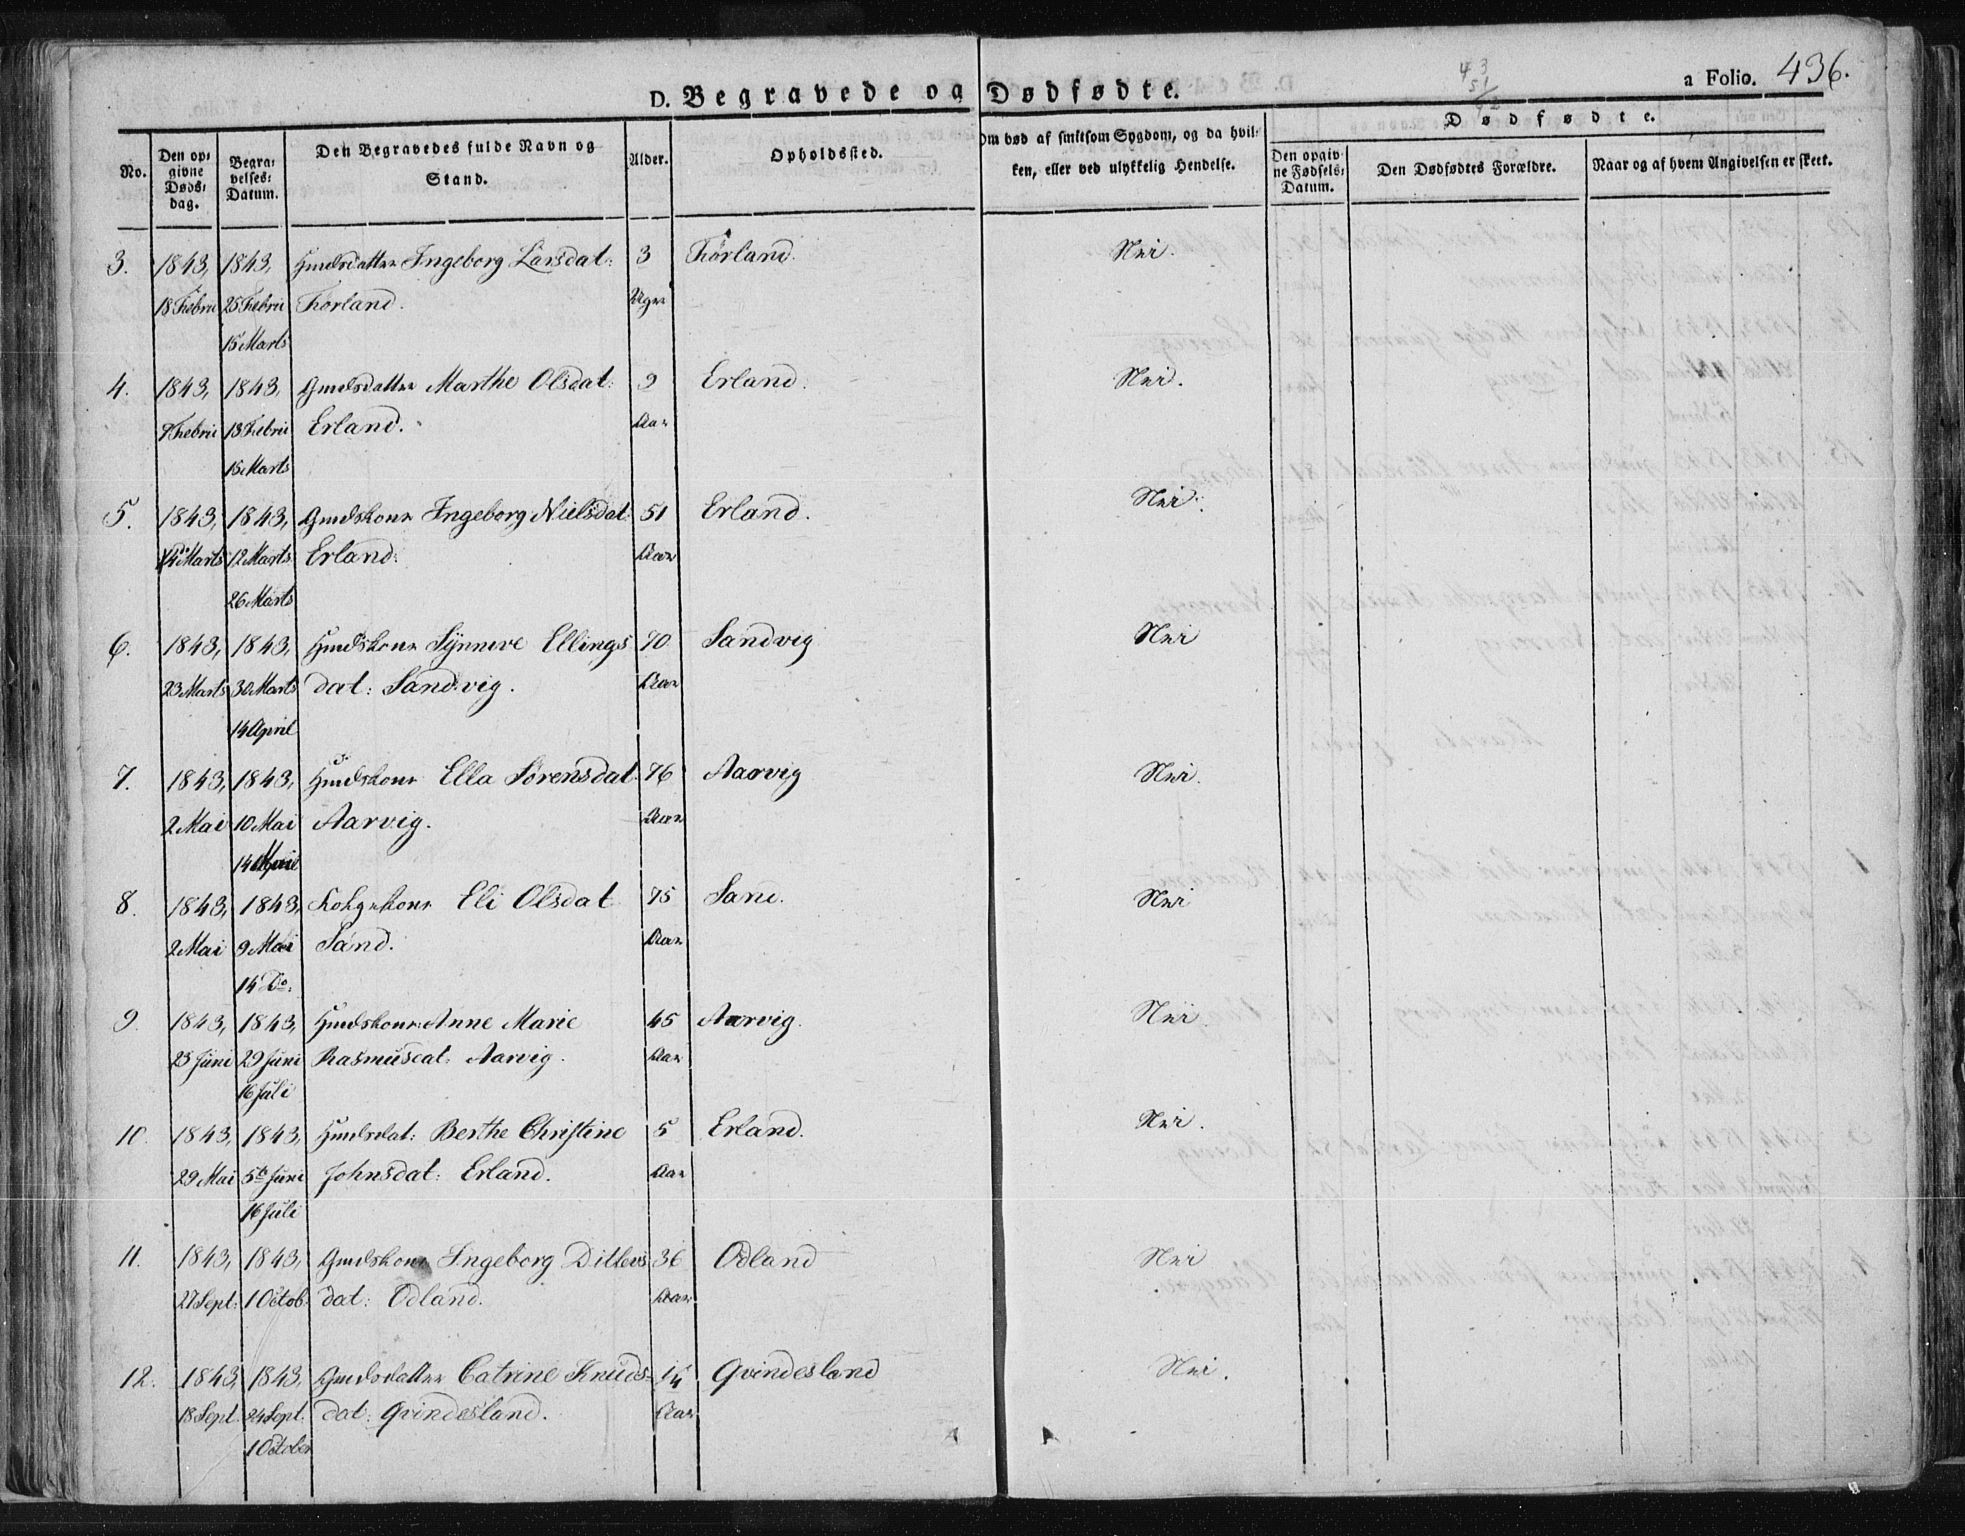 D. Begravede og Dødfødte.
a Folio. 436.
43
51
92
No.
Den op-
givne
Døds-
dag.
Begra-
velses-
Datum.
Den Begravedes fulde Navn og
Stand.
Alder.
Opholdssted.
Om død af smitsom Sygdom, og da hvil-
ken, eller ved ulykkelig Hendelse.
Dødfødte.
Den opgiv-
ne Fødsels-
Datum.
Den Dødfødtes Forældre.
Naar og af hvem Angivelsen er skeet.
3. 1843, 1843, Gmdsdatter Ingeborg Larsdat: 3 Förland. Nei.
18 Febru 25 Febru Förland. Uger
15 Marts
4. 1843, 1843, Gmdsdatter Marthe Olsdat: 9 Erland. Nei.
7 Febru 13 Febru Erland. Aar
15 Marts
5. 1843, 1843, Gmdskone Ingeborg Nielsdat: 51 Erland. Nei.
4de Marts 12 Marts Erland: Aar
26 Marts
6. 1843, 1843, Gmdskone Synneve Ellings 70 Sandvig Nei
23 Marts 30 Marts dat: Sandvig. Aar
14 April
7. 1843, 1843, Hmdskone Ella Sörensdat 76 Aarvig Nei.
2 Mai 10 Mai Aarvig. Aar
14 Mai
8. 1843, 1843, Eli Olsdat 75 Sand. Nei
2 Mai 9 Mai Sand. Aar
14 Do:
9. 1843, 1843, Hmdskone Anne Marie 45 Aarvig. Nei.
23 Juni 29 Juni Rasmusdat: Aarvig. Aar
16 Juli
10. 1843, 1843, Hmdsdat: Berthe Christine 5 Erland. Nei.
29 Mai 5te Juni Johnsdat: Erland. Aar
16 Juli
11. 1843, 1843, Gmdskone Ingeborg Ditlevs 36 Odland Nei
27 Sept: 1 Octob: dat: Odland. Aar
12. 1843, 1843, Gmdsdatter Catrine Knuds- 14 Qvindesland Nei.
18 Sept. 24 Sept. dat: Qvindesland. Aar
1 October